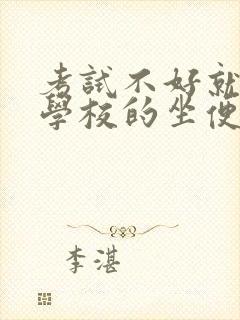 考試不好就
學校的坐便
李湛